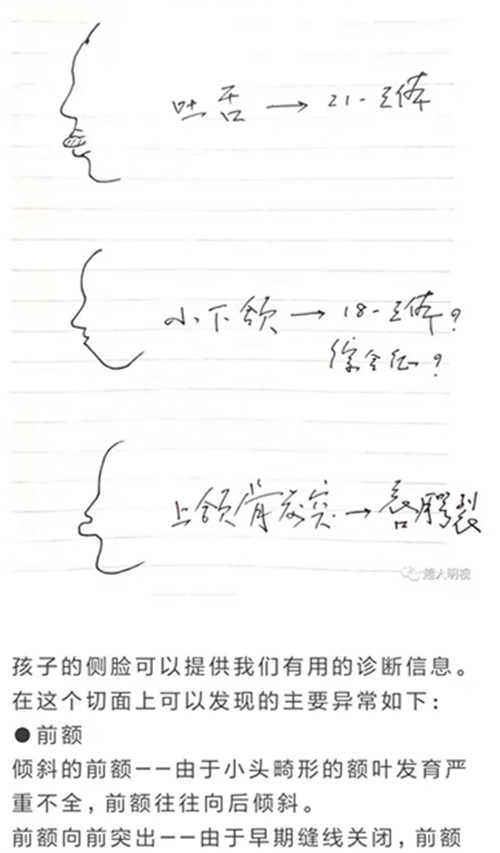 吐舌 → 21-三体
小下颌 → 18-三体?
综合征?
上颌骨前突 → 唇腭裂
超人明视
孩子的侧脸可以提供我们有用的诊断信息。
在这个切面上可以发现的主要异常如下：
●前额
倾斜的前额——由于小头畸形的额叶发育严
重不全，前额往往向后倾斜。
前额向前突出——由于早期缝线关闭，前额